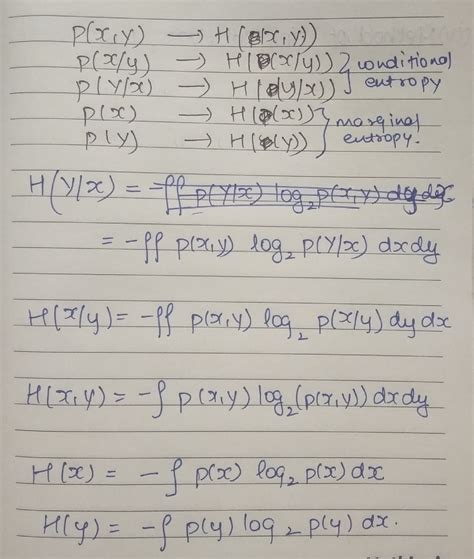 P(x,y) → H(P(x,y))
P(x/y) → H(P(x/y)) } conditional
P(Y/x) → H(P(Y/x)) entropy
P(x) → H(P(x)) } marginal
P(Y) → H(P(Y)) entropy.
H(Y/x) = -∫∫ p(Y/x) log₂ p(x,y) dy dx
= -∫∫ p(x,y) log₂ p(Y/x) dxdy
H(x/y) = -∫∫ p(x,y) log₂ p(x/y) dy dx
H(x,y) = -∫ p(x,y) log₂(p(x,y)) dxdy
H(x) = -∫ p(x) log₂ p(x) dx
H(y) = -∫ p(y) log₂ p(y) dx.